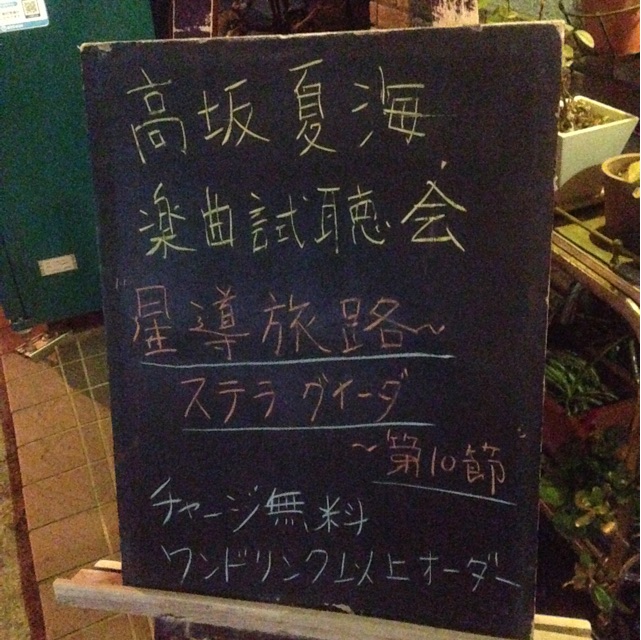 高坂夏海
楽曲試聴会
星導旅路〜
ステラ グイーダ
〜第10節
チャージ無料
ワンドリンク以上オーダー